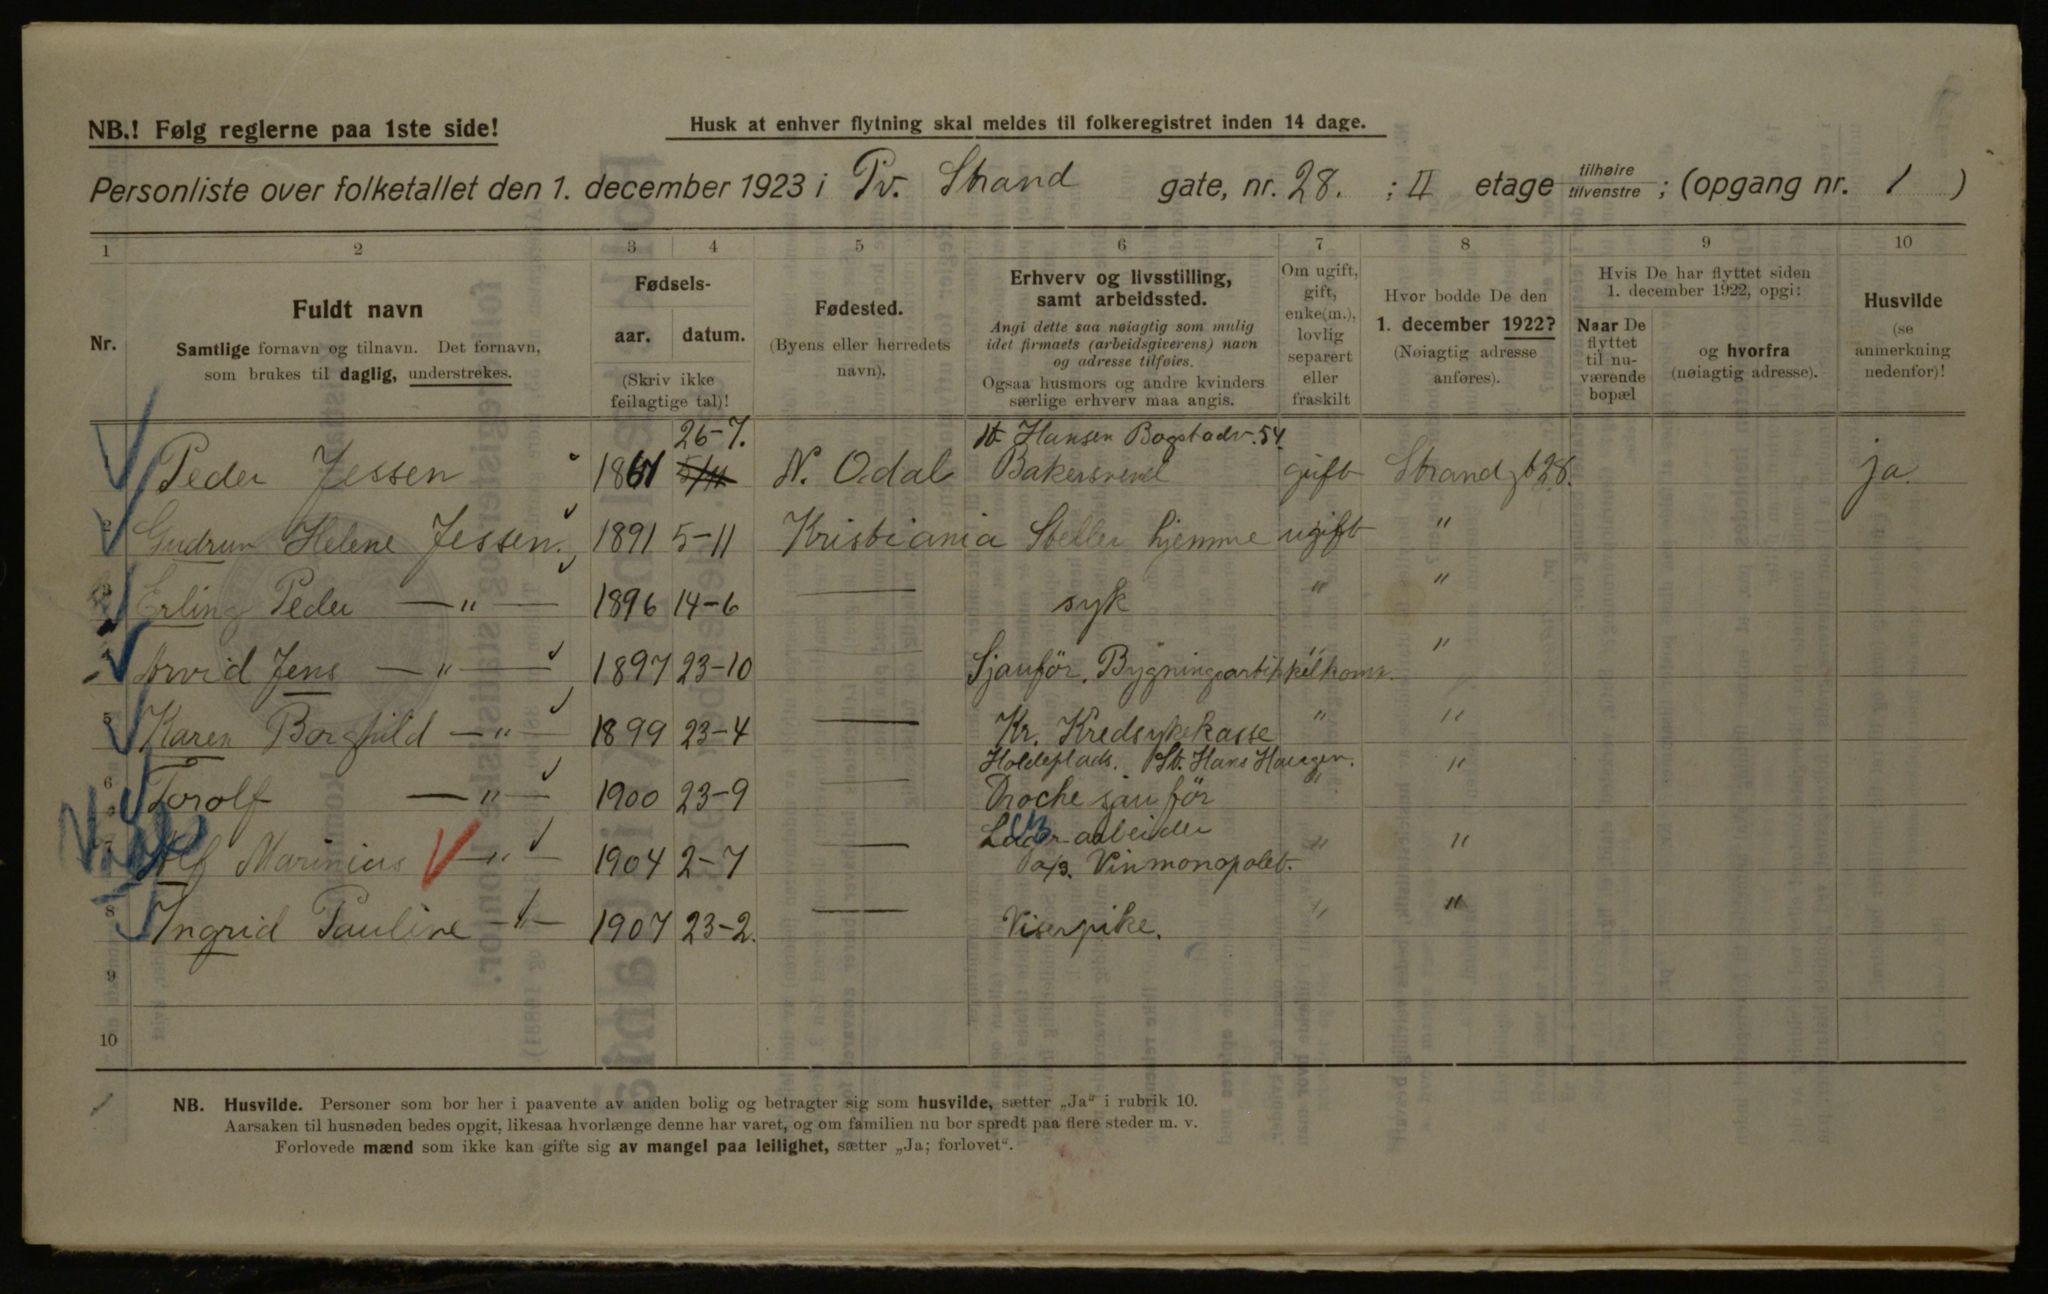 NB.! Følg reglerne paa 1ste side!
Husk at enhver flytning skal meldes til folkeregistret inden 14 dage.
Personliste over folketallet den 1. december 1923 i Pv. Strand gate, nr. 28. ; II etage tilhøire tilvenstre ; (opgang nr. 1 )
1 2 3 4 5 6 7 8 9 10
Nr.
Fuldt navn
Samtlige fornavn og tilnavn. Det fornavn,
som brukes til daglig, understrekes.
Fødsels-
aar. datum.
(Skriv ikke
feilagtige tal)!
Fødested.
(Byens eller herredets
navn).
Erhverv og livsstilling,
samt arbeidssted.
Angi dette saa nøiagtig som mulig
idet firmaets (arbeidsgiverens) navn
og adresse tilføies.
Ogsaa husmors og andre kvinders
særlige erhverv maa angis.
Om ugift,
gift,
enke(m.),
lovlig
separert
eller
fraskilt
Hvor bodde De den
1. december 1922?
(Nøiagtig adresse
anføres).
Hvis De har flyttet siden
1. december 1922, opgi:
Naar De
flyttet
til nu-
værende
bopæl
og hvorfra
(nøiagtig adresse).
Husvilde
(se
anmerkning
nedenfor)!
26-7. Hansen Bogstadv. 54.
Peder Jessen 1861 5/11 N. Odal Bakersvend gift Strandgt 28. ja.
2 Gudrun Helene Jessen. 1891 5-11 Kristiania Steller hjemme ugift "
3 Erling Peder —"— 1896 14-6 — syk " "
4 Arvid Jens —"— 1897 23-10 Sjauför. Bygningsartikkelkom. " "
5 Karen Borghild —"— 1899 23-4 — Kr. Kredsykekasse " "
Holdeplads. St. Hans Haugen.
6 Torolf —"— 1900 23-9 — Droche sjauför " "
arbeider
7 Alf Marinius —"— 1904 2-7 — a/s. Vinmonopolet. " "
8 Ingrid Pauline —"— 1907 23-2. — Viserpike. " "
9
10
NB. Husvilde. Personer som bor her i paavente av anden bolig og betragter sig som husvilde, sætter „Ja" i rubrik 10.
Aarsaken til husnøden bedes opgit, likesaa hvorlænge denne har varet, og om familien nu bor spredt paa flere steder m. v.
Forlovede mænd som ikke kan gifte sig av mangel paa leilighet, sætter „Ja; forlovet".